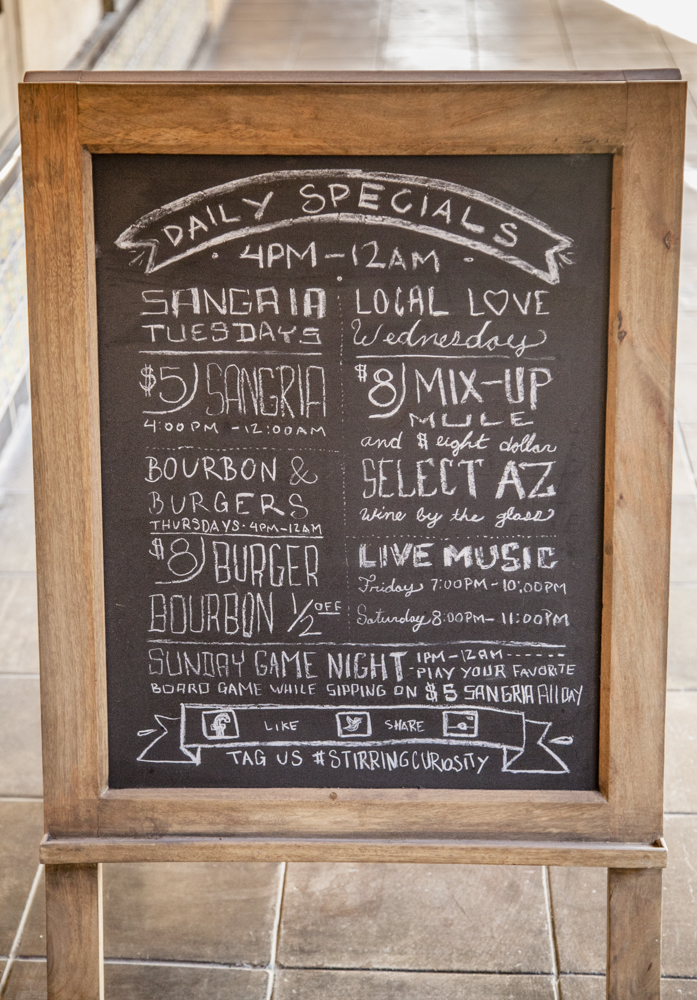 DAILY SPECIALS
4PM-12AM
SANGRIA
TUESDAYS
$5 SANGRIA
4:00PM -12:00AM
BOURBON &
BURGERS
THURSDAYS · 4PM-12AM
$8 BURGER
BOURBON 1/2 OFF
LOCAL L♡VE
Wednesday
$8 MIX-UP
MULE
and $ eight dollar
SELECT AZ
Wine by the glass
LIVE MUSIC
Friday 7:00PM-10:00PM
Saturday 8:00PM-11:00PM
SUNDAY GAME NIGHT 1PM-12AM
PLAY YOUR FAVORITE
BOARD GAME WHILE SIPPING ON $5 SANGRIA All DAY
f LIKE SHARE
TAG US #STIRRINGCURIOSITY